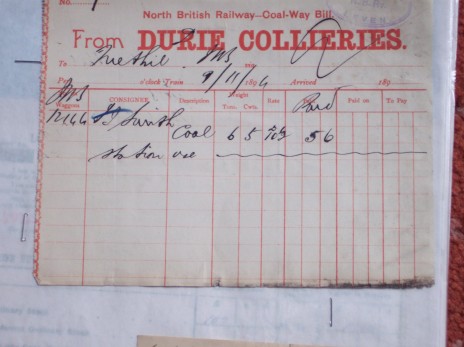 No.
North British Railway—Coal-Way Bill
From DURIE COLLIERIES.
To Methil
Per o'clock Train 9/11/1896 Arrived 189
Waggons CONSIGNEE Description Weight Rate Paid Paid on To Pay
Tons. Cwts.
12144 Smith Coal 6 5 5 6
Station use